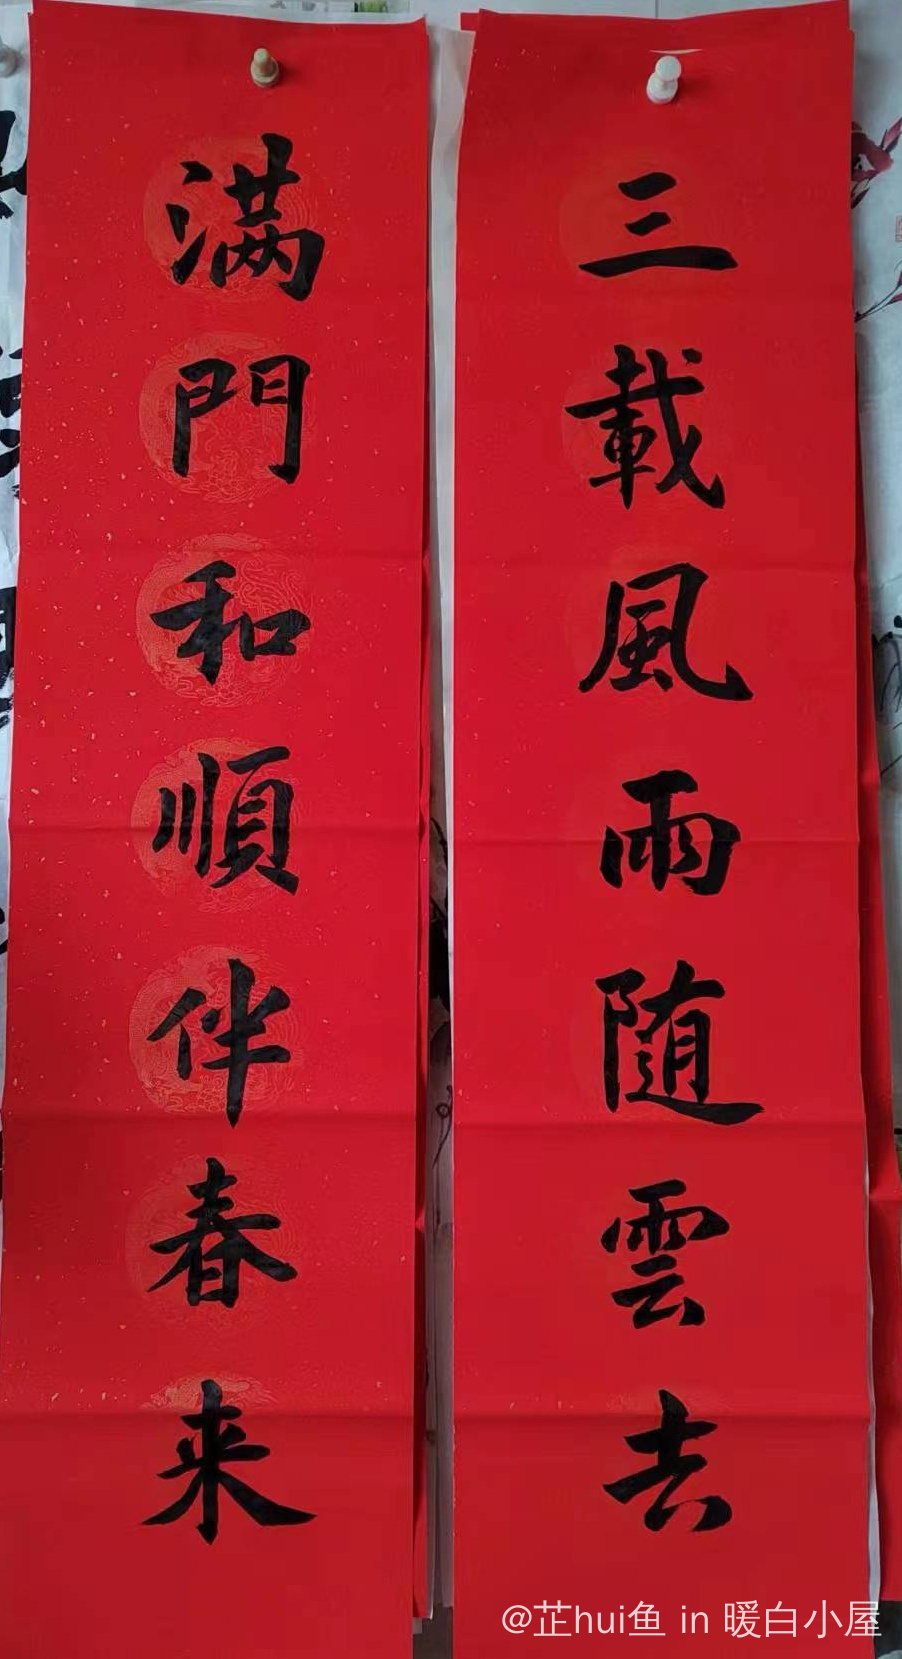 三載風雨随雲去
满門和順伴春来
@芷hui鱼 in 暖白小屋